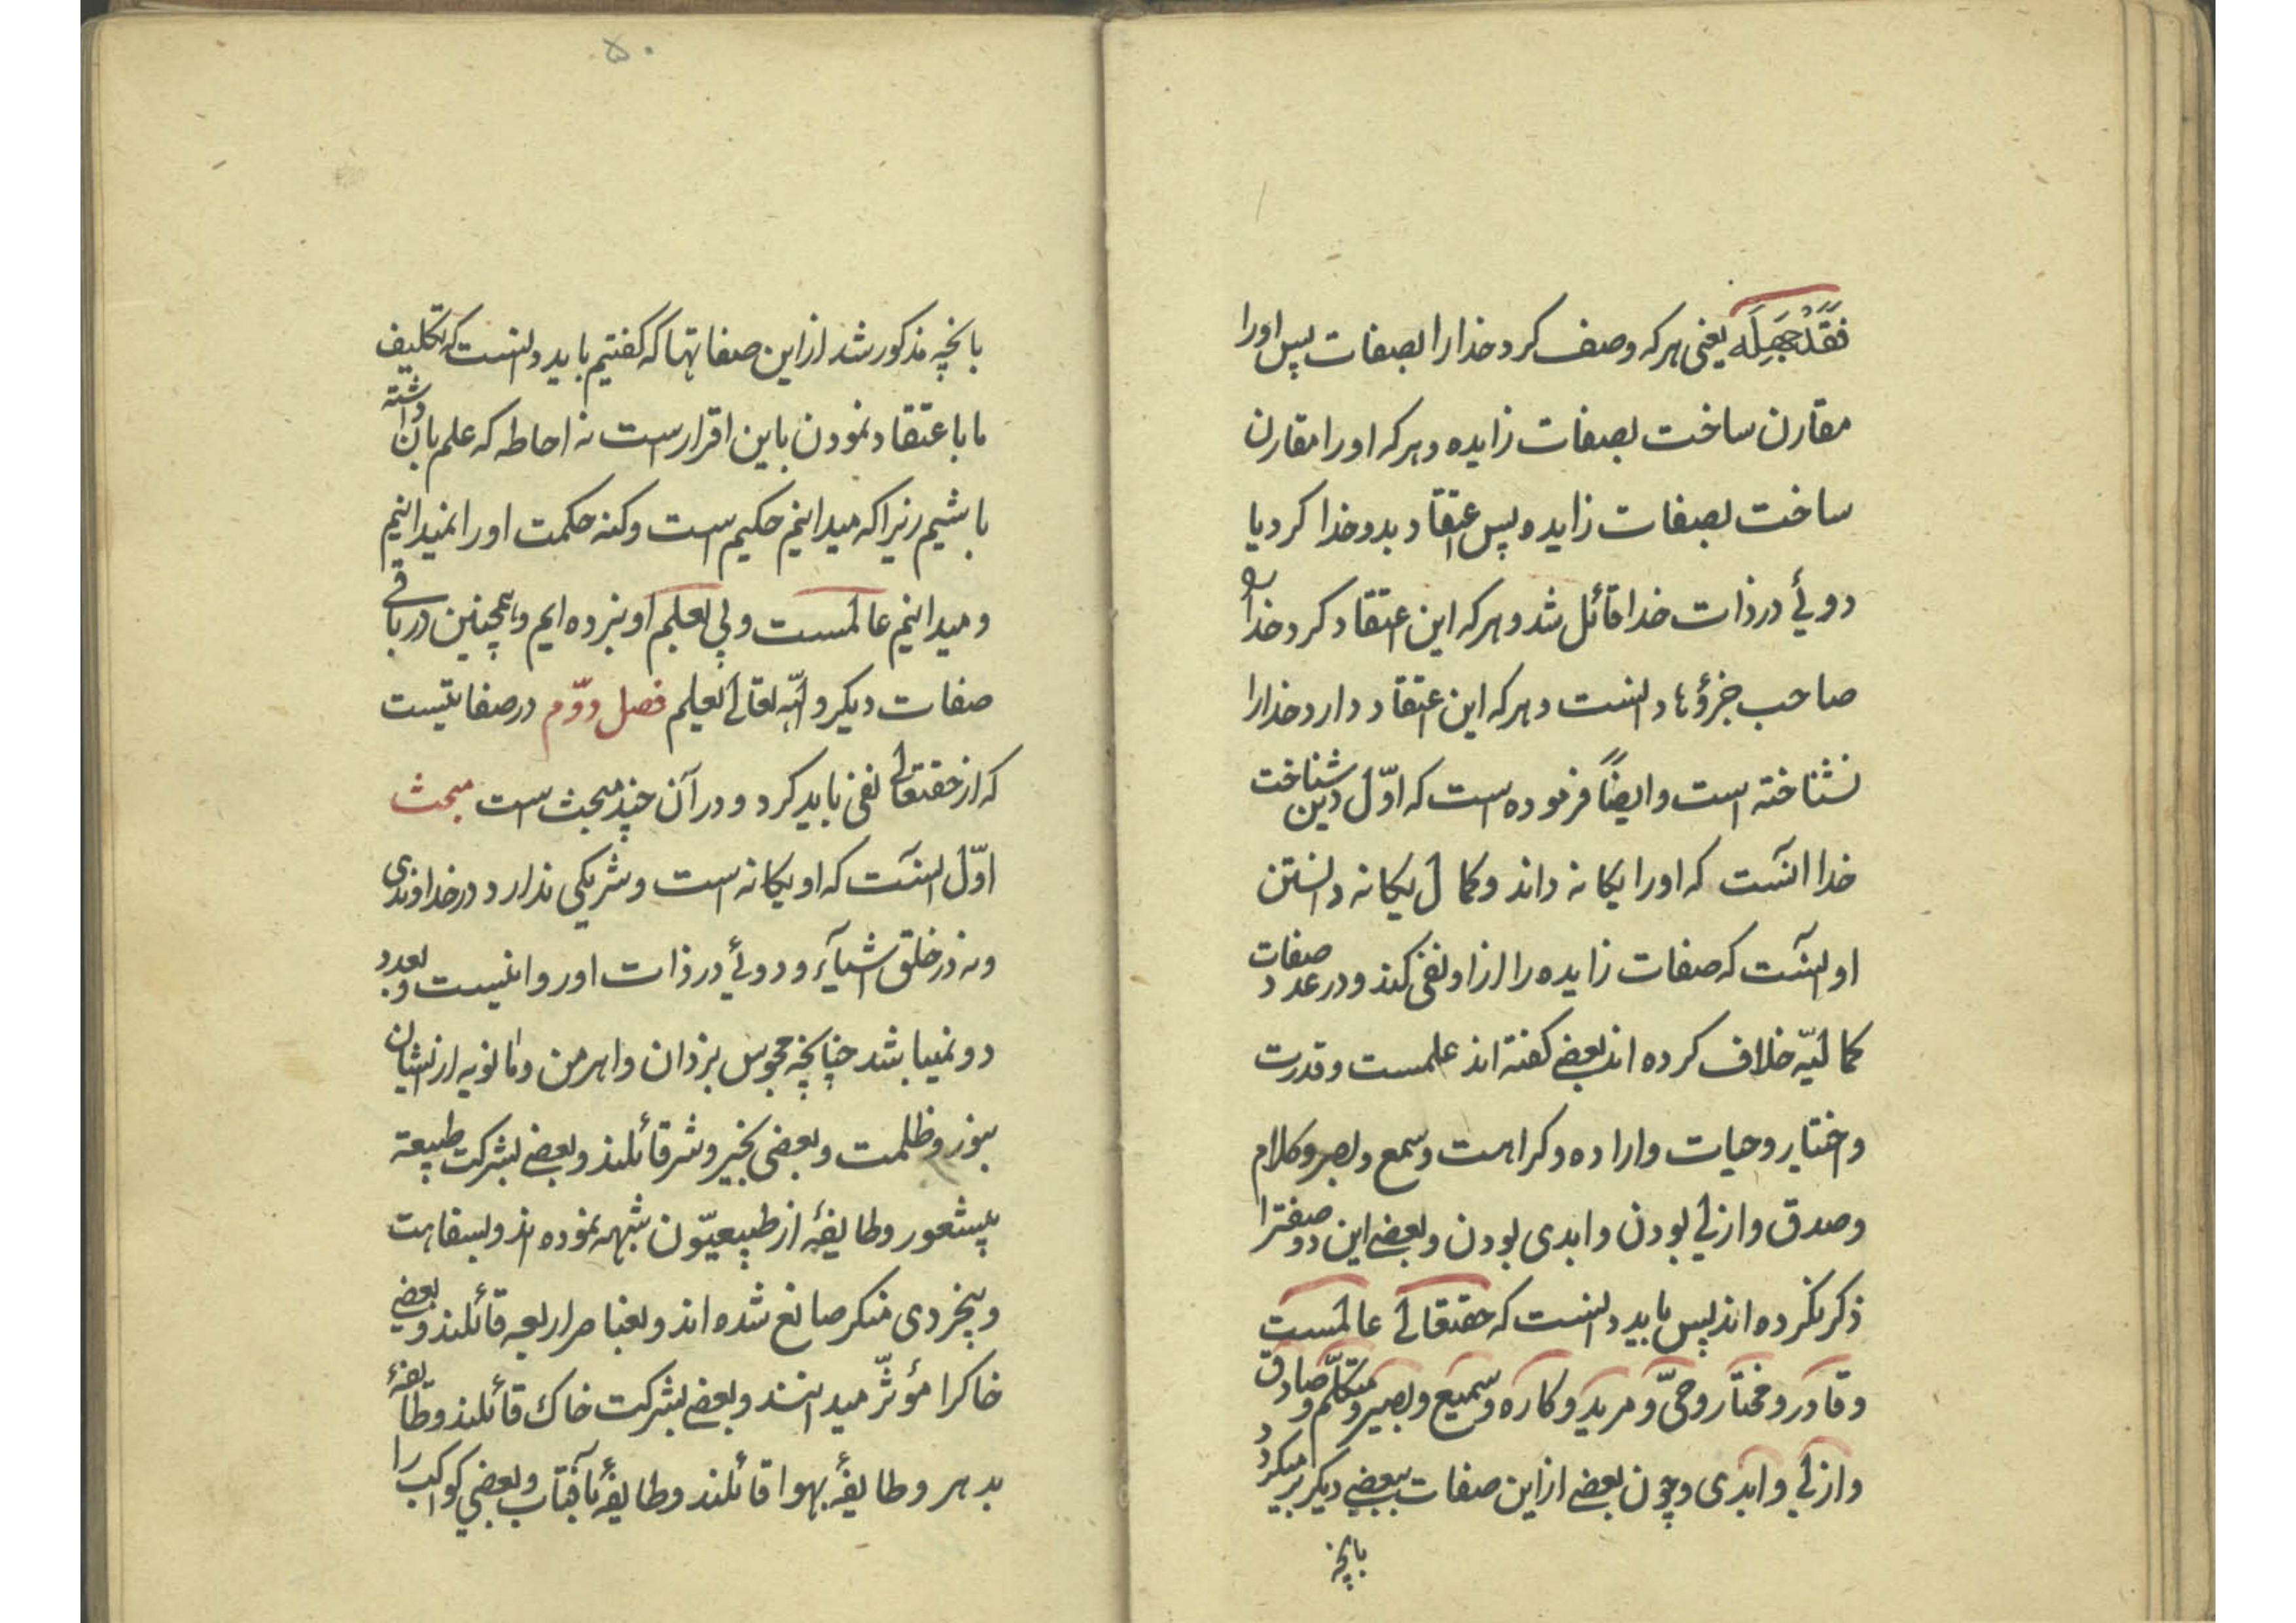 فَقَدْ جَهِلَه یعنی هرکه وصف کرد خدا را بصفات پس او را
مقارن ساخت بصفات زایده و هرکه او را مقارن
ساخت بصفات زایده پس اعتقاد بدو خدا کرد یا
دوئی در ذات خدا قائل شد و هرکه این اعتقاد کرد خدا را
صاحب جزؤها دانست و هرکه این اعتقاد دارد خدا را
نشناخته است و ایضاً فرموده است که اوّل دین شناخت
خدا آنست که او را یکانه داند و کمال یکانه دانستن
او آنست که صفات زایده را از او نفی کند و در عدد صفات
کمالیّه خلاف کرده اند بعضی کفته اند علمست و قدرت
و اختیار و حیات و اراده و کراهت و سمع و بصر و کلام
و صدق و ازلی بودن و ابدی بودن و بعضی این دو صفترا
ذکر نکرده اند پس باید دانست که حقتعالی عالمست
و قادر و مختار و حیّ و مرید و کاره و سمیع و بصیر و متکلّم و صادق
و ازلی و ابدی و چون بعضی از این صفات ببعضی دیکر بر میکردد
بانچه
۵۰
بانچه مذکور شد از این صفاتها که کفتیم باید دانست که تکلیف
ما با عتقاد نمودن باین اقرار است نه احاطه که علم بان داشته
باشیم زیرا که میدانیم حکیم است و کنه حکمت او را نمیدانیم
و میدانیم عالمست ولی پی بعلم او نبرده ایم و همچنین در باقی
صفات دیکر و اللّه تعالی العلیم فصل دوّم در صفاتیست
که از حقتعالی نفی باید کرد و در آن چند مبحث است مبحث
اوّل آنست که او یکانه است و شریکی ندارد در خداوندی
و نه در خلق اشیآء و دوئی در ذات او روا نیست و بعدد
دو نمیباشد چنانچه مجوس بیزدان و اهرمن و مانویه از ایشان
بنور و ظلمت و بعضی بخیر و شر قائلند و بعضی بشرکت طبیعة
بیشعور و طایفهٔ از طبیعیّون شبهه نموده اند و بسفاهت
و بیخردی منکر صانع شده اند و بعناصر اربعه قائلند و بعضی
خاکرا مؤثّر میدانند و بعضی بشرکت خاک قائلند و طایفهٔ
بدهر و طایفهٔ بهوا قائلند و طایفهٔ بآفتاب و بعضی کواکب را